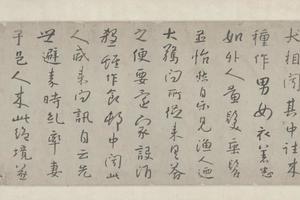 犬相聞其中往來
種作男女衣著悉
如外人黃髮垂髫
並怡然自樂見漁人迺
大驚問所從來具答
之便要還家設酒
殺雞作食邨中聞此
人咸來問訊自云先
世避秦時亂率妻
子邑人來此絕境